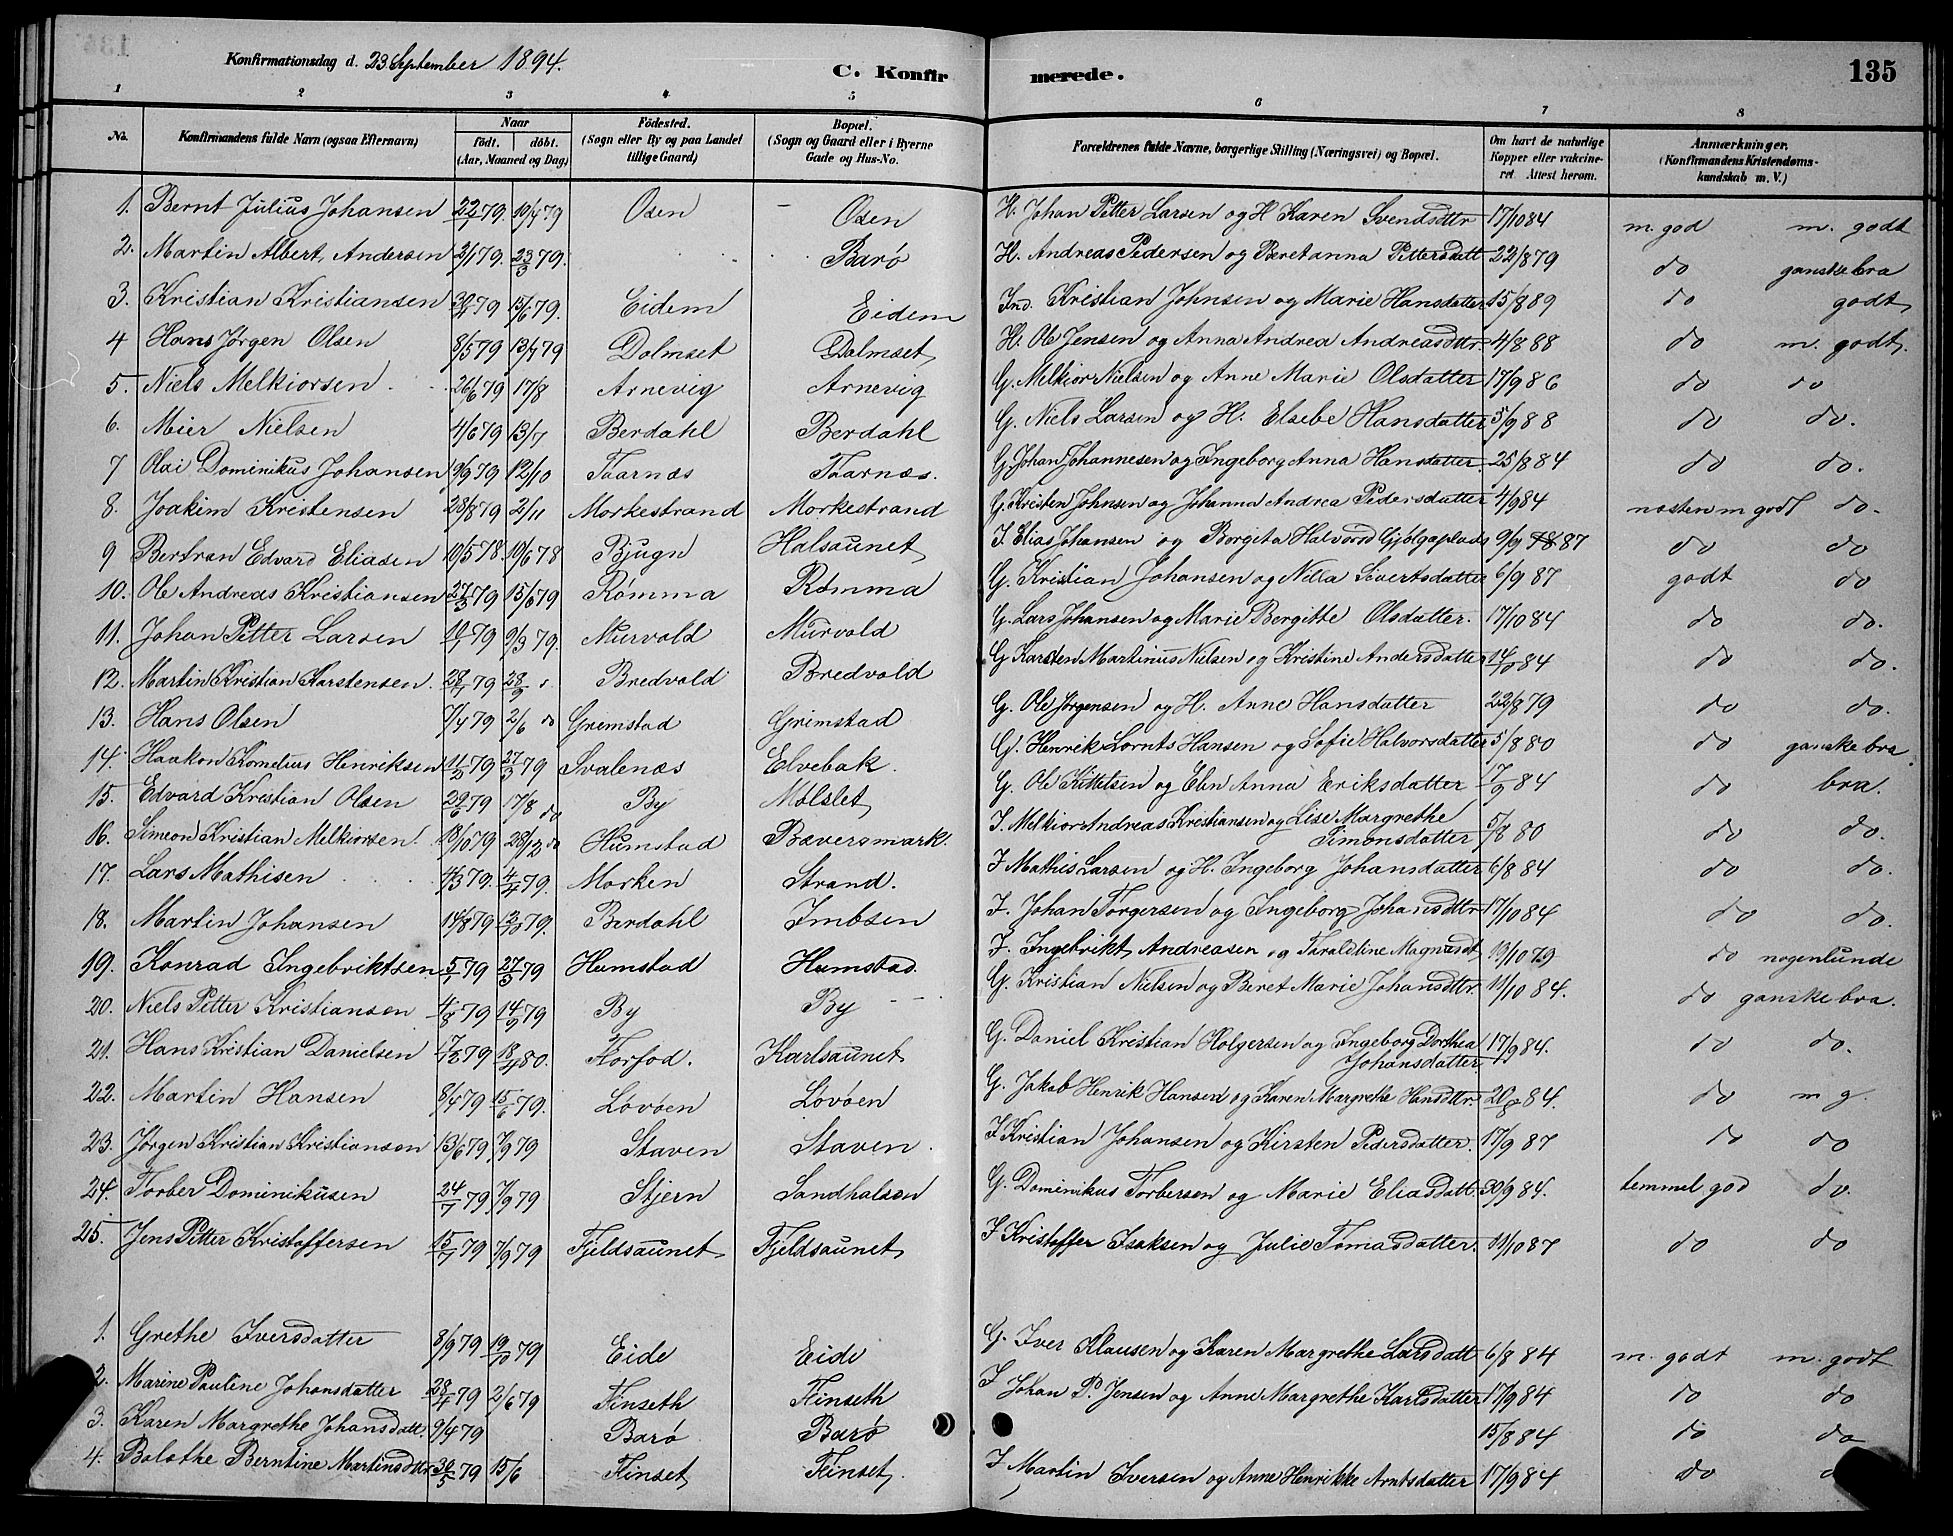 Konfirmationsdag d. 23 September 1894. C. Konfirmerede. 135
1 2 3 4 5 6 7 8
No. Konfirmandens fulde Navn (ogsaa Efternavn) Naar födt. döbt. (Aar, Maaned og Dag) Födested. (Sogn eller By og paa Landet tillige Gaard) Bopæl. (Sogn og Gaard eller i Byerne Gade og Hus-No. Forældrenes fulde Navne, borgerlige Stilling (Næringsvei) og Bopæl. Om havt de naturlige Kopper eller vakcineret. Attest herom. Anmærkninger. (Konfirmandens Kristendomskundskab m. V.)
1. Bernt Julius Johansen 22/1 79. 10/4 79 Osen Osen H. Johan Petter Larsen og H Karen Svendsdtr 17/10 84 m. god m. godt
2. Martin Albert Andersen 2/1 79. 23/3 79. Barø H. Andreas Pedersen og Beretanna Pettersdatt 22/8 79 do ganske bra
3. Kristian Kristiansen 79 15/6 79. Eidem Eidem Ind. Kristian Johnsen og Marie Hansdatter 15/8 89 do godt
4 Hans Jörgen Olsen 8/5 79 13/7 79 Dolmset Dolmset H. Ole Jensen og Anna Andrea Andreasdtr. 4/8 88 do m. godt.
5. Niels Melkiorsen 26/6 79 17/8 Arnevig Arnevig G. Melkior Nielsen og Anne Marie Olsdatter 17/9 86 do do
6. Meier Nielsen 4/6 79 13/7 Berdahl Berdahl G. Niels Larsen og H. Elsebe Hansdatter 5/9 88 do do.
7 Olai Dominikus Johansen 9/9 79 12/10 Taarnæs Taarnæs. G. Johan Johannesen og Ingeborg Anna Hansdatter 25/8 84 do do.
8. Joakim Kristensen 28/8 79 2/11 Morkestrand Morkestrand G. Kristen Johnsen og Johanna Andrea Pedersdatter 4/9 84 næsten m godt do.
9 Bertran Edvard Eliasen 10/5 78. 10/6 78 Bjugn Halsaunet I. Elias Johansen og Borgeta Halvorsd 9/9 87 do do
10. Ole Andreas Kristiansen 27/3 79 15/6 79 Römma Rømma G. Kristian Johansen og Nella Sivertsdatter 6/9 87 godt do
11. Johan Petter Larsen 79 9/3 79. Murvold Murvold G. Lars Johansen og Marie Bergitte Olsdatter. 17/10 84 do do.
12. Martin Kristian Karstensen. 28/7 79 28/9 Bredvold Bredvold G Karsten Martinus Nielsen og Kristine Andersdatter 14/10 84 do do.
13. Hans Olsen 7/4 79 2/6 do Grimstad Grimstad G. Ole Jørgensen og H. Anne Hansdatter 22/8 79 do do.
14. Haakon Kornelius Henriksen 11/2 79 27/3 79 Svalenæs Elvebak. G. Henrik Lornts Hansen og Sofie Halvorsdatter 5/8 80 do ganske bra.
15. Edvard Kristian Olsen 29/6 79 17/8 do By Mølslet G. Ole Kittelsen og Elen Anna Eriksdatter 17/9 84 do bra.
16. Simeon Kristian Melkiorsen. 18/10 79 28/12 do Humstad Bæversmark. I. Melkior Andreas Kristiansen og Lise Margrethe
Simonsdatter 5/8 80 do do.
17. Lars Mathisen 4/3 79. 4/4 79. Morken Strand. I Mathis Larsen og H. Ingeborg Johansdatter 6/8 84 do do.
18. Martin Johansen 14/8 79 12/10 79. Berdahl Imbsen I. Johan Torgersen og Ingeborg Johansdtr. 17/10 84 do do.
19. Konrad Ingebriktsen 5/1 79 27/3 79 Humstad Humstad. I. Ingebrikt Andreasen og Taraldine Magnusdt. 13/10 79 do nogenlunde
20. Niels Petter Kristiansen 4/8 79 14/9 79 By By G. Kristian Nielsen og Beret Marie Johansdtr. 11/10 84. do ganske bra.
21. Hans Kristian Danielsen 17/12 79 18/4 80. Forfod. Karlsaunet G. Daniel Kristian Holgersen og Ingeborg Dorthea
Johansdatter. 17/9 84. do do.
22. Martin Hansen 8/4 79 15/6 79. Løvöen Løvöen G. Jakob Henrik Hansen og Karen Margrethe Hansdtr. 84. do m g.
23. Jörgen Kristian Kristiansen 13/6 79 7/9 79 Staven Staven. I Kristian Johansen og Kirsten Pedersdatter. 17/9 87 do do
24. Torber Dominikusen 24/7 79 7/9 79 Stjern Sandhalsen G. Dominikus Torbersen og Marie Eliasdatt. 30/9 84. temmel. god do.
25. Jens Petter Kristoffersen 15/7 79 7/9 79 Fjeldsaunet Fjeldsaunet I Kristoffer Isaksen og Julie Tomasdatter. 11/10 87 do do
1. Grethe Iversdatter 8/9 79 19/10 79 Eide Eide G. Iver Klausen og Karen Margrethe Larsdatt 6/8 84 m. godt m. godt
2. Marine Pauline Johansdatter 28/4 79 2/6 79 Finseth Finseth I Johan P. Jensen og Anne Margrethe Karlsdatter 17/9 84 do do
3. Karen Margrethe Johansdatt. 9/4 79 Barø Barø 15/8 84 do do
4. Bolothe Berntine Martinsdtr 30/5 79 15/6 Finset Finset. I Martin Iversen og Anne Henrikke Arntsdatter 17/9 84 do